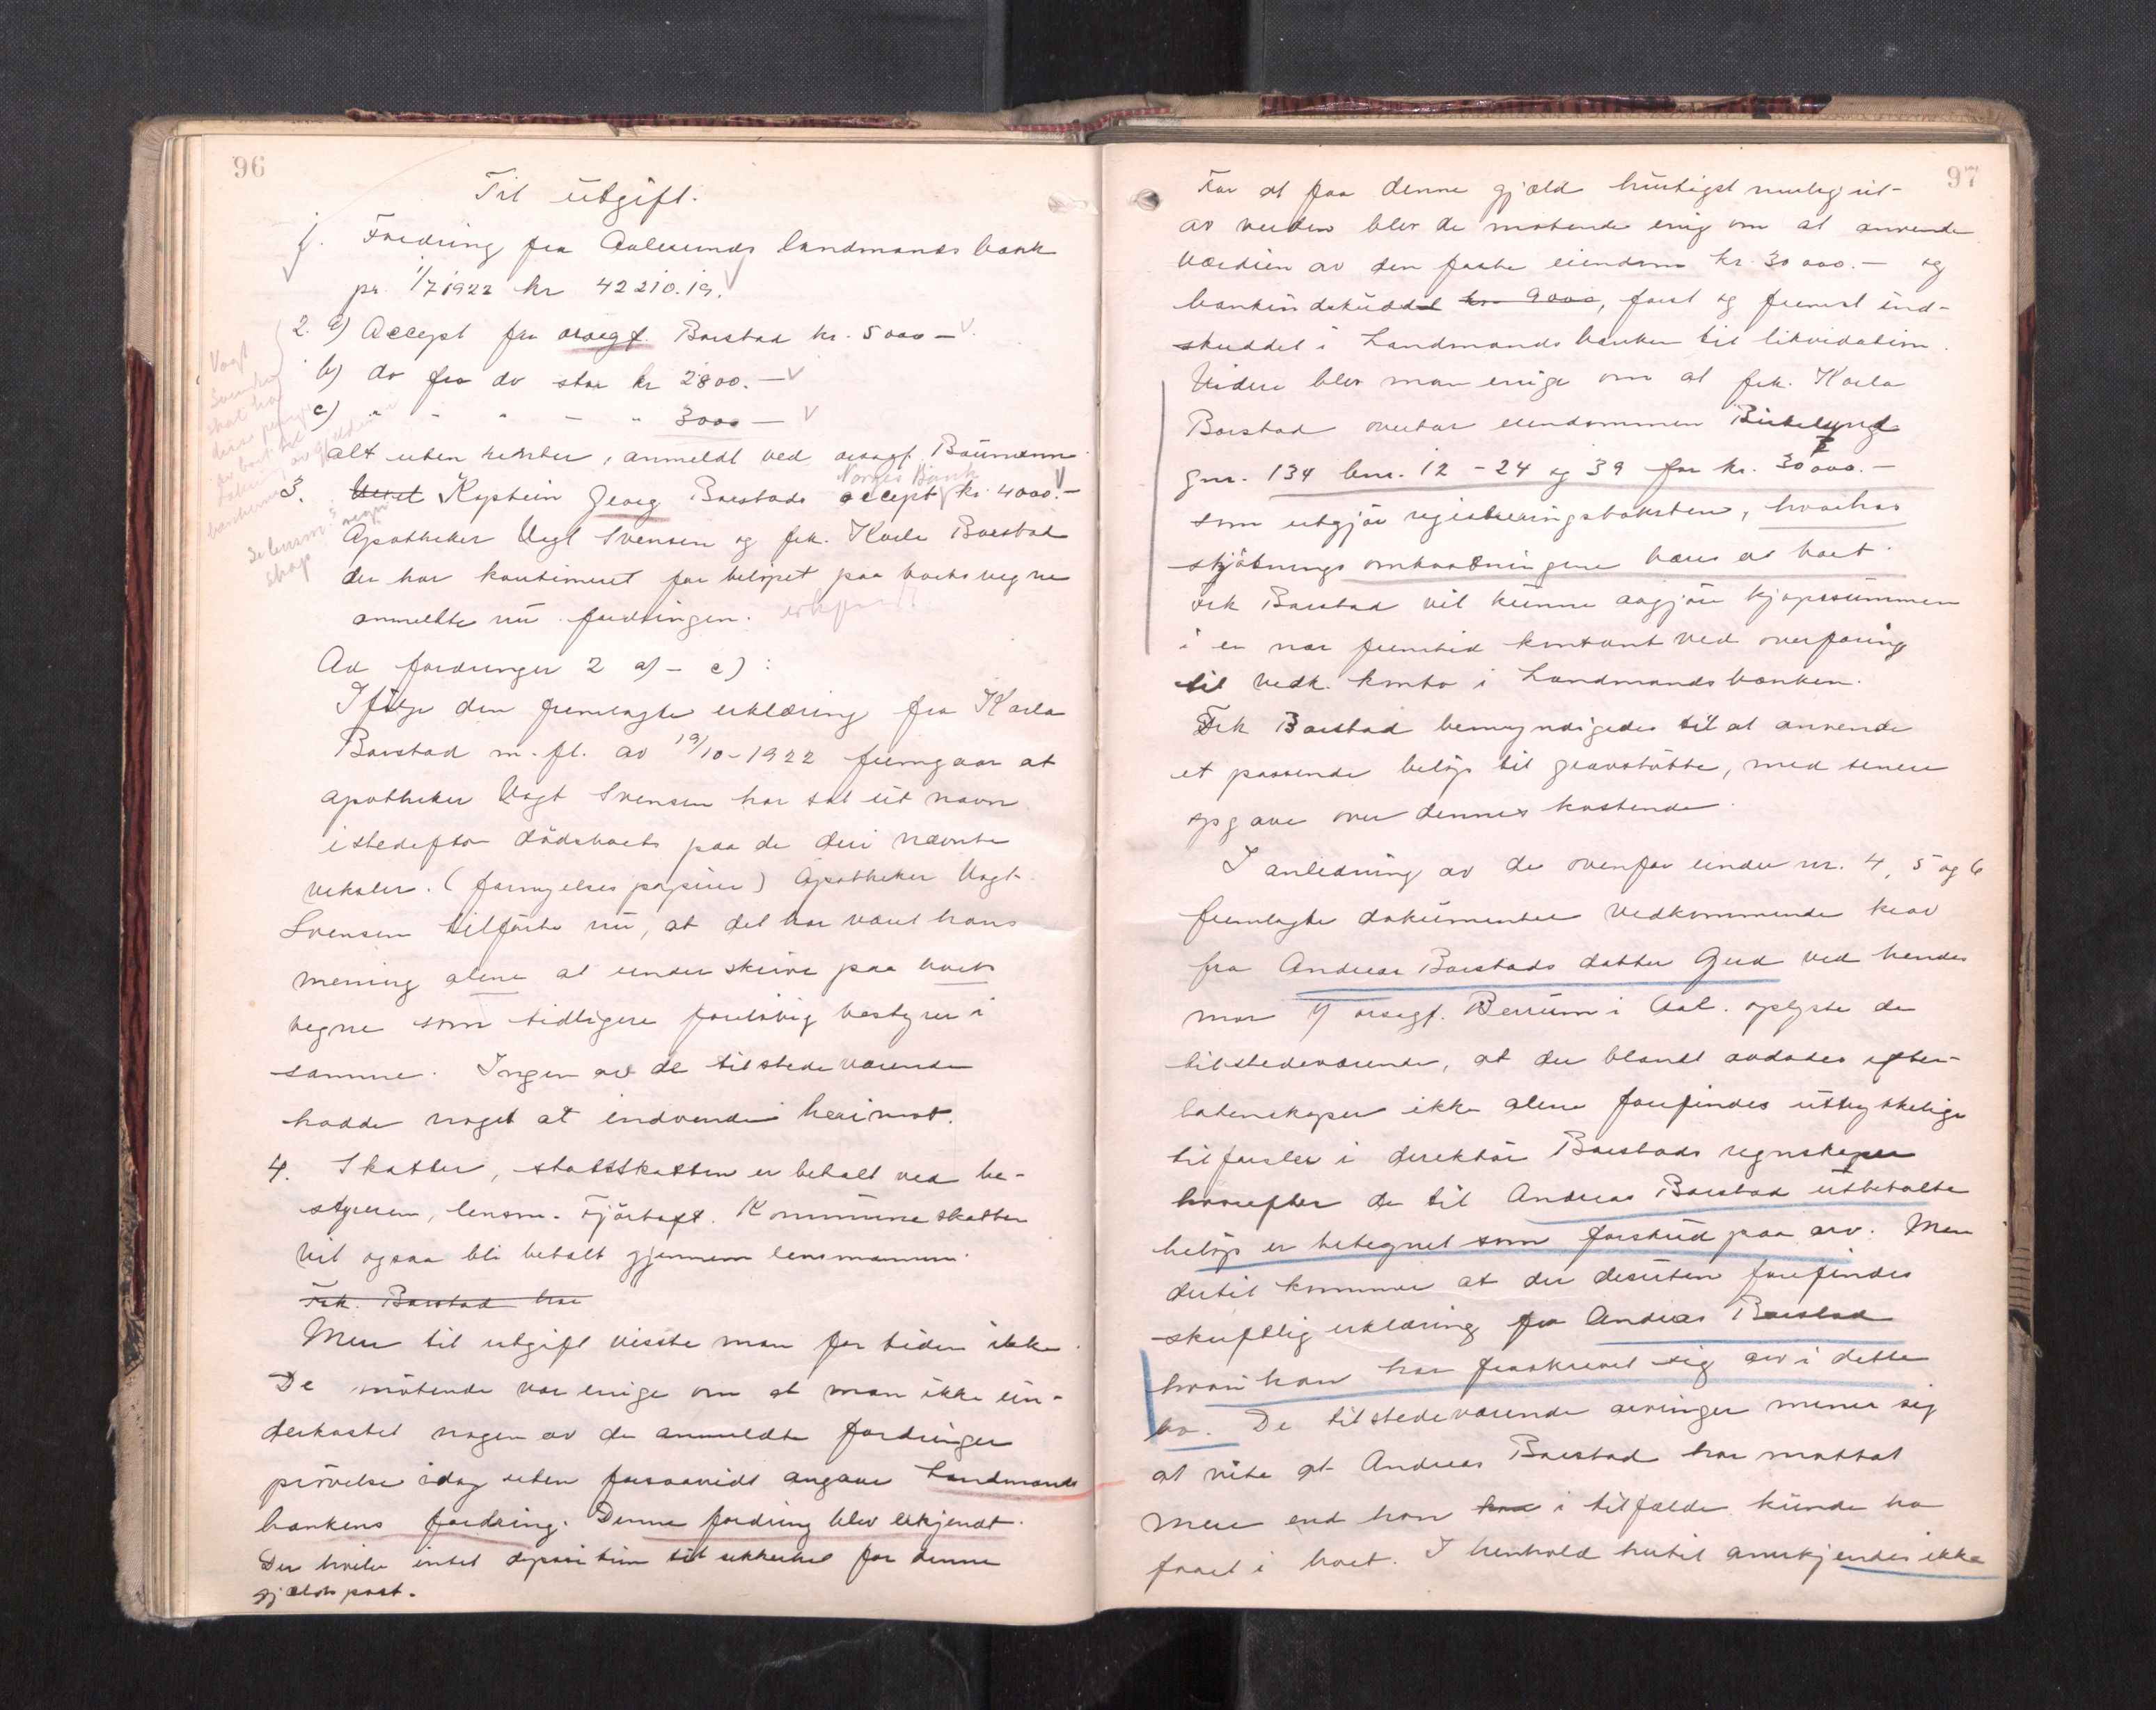 96
Til utgift.
1. Fordring fra Aalesunds landmands bank
pr. 1/7 1922 kr 42210.19.
2. a) Accept fra orsagf. Barstad kr. 5000 —
b) do fra do stor kr 2800. —
c) " - " - " 3000 —
alt uten renter, anmeldt ved orsagf. Baumann.
Norges Bank
3. Kaptein Georg Barstads accept kr. 4000.-
Apotheker Vogt Svensen og frk. Karla Barstad
der har kautionert for beløpet paa boets vegne
anmeldte nu fordringen. erkjendt
Ad fordringer 2 a) - c) :
Ifølge den fremlagte erklæring fra Karla
Barstad m. fl. av 19/10-1922 fremgaar at
apotheker Vogt Svensen har sat sit navn
istedetfor dödsboets paa de deri nævnte
veksler. (fornyelses papirer) Apotheker Vogt
Svensen tilførte nu, at det har været hans
mening alene at underskrive paa boets
vegne som tidligere foreløbig bestyrer i
samme. Ingen av de tilstedeværende
hadde noget at indvende herimot.
4. Skatter, statsskatten er betalt ved be-
styreren, lensm. Fjörtoft. Kommuneskatten
vil ogsaa bli betalt gjennem lensmannen.
Frk. Barstad har
Mere til utgift visste man for tiden ikke.
De møtende var enige om at man ikke un-
derkastet nogen av de anmeldte fordringer
prövelse idag uten forsaavidt angaar Landmands
bankens fordring. Denne fordring blev erkjendt.
Der hviler intet deposition til sikkerhet for denne
gjelds post.
Vogt
Svensen
skal ha
disse penge
av boet til
bankerne
Se lensm.s regn
skap
97
For at faa denne gjæld hurtigst mulig ut-
av verden blev de møtende enig om at anvende
værdien av den faste eiendom kr. 30 000.— og
bankindskuddet kr. 9000, først og fremst ind-
skuddet i Landmandsbanken til likvidation.
Videre blev man enige om at frk. Karla
Barstad overtar eiendommen Birkelund
gnr. 134 bnr. 12 - 24 og 39 for kr. 30 000.—
som utgjør registreringstaksten, hvorhos
skjøtnings omkostningene bæres av boet.
Frk Barstad vil kunne avgjøre kjøpesummen
i en nær fremtid kontant ved overføring
til vedk. konto i Landmandsbanken.
Frk Barstad bemyndigedes til at anvende
et passende beløp til gravstøtte, med senere
opgave over dennes kostende.
I anledning av de ovenfor under nr. 4, 5 og 6
fremlagte dokumenter vedkommende krav
fra Andreas Barstads datter Gerd ved hendes
mor v/ orsagf. Berrum i Aal. oplyste de
tilstedeværende, at der blandt avdødes efter-
latenskaper ikke alene forefindes uttrykkelige
tilførsler i direktør Barstads regnskaper
hvorefter de til Andreas Barstad utbetalte
beløp er betegnet som forskud paa arv. Men
dertil kommer at der desuten forefindes
skriftlig erklæring fra Andreas Barstad
hvori han har fraskrevet sig arv i dette
bo. De tilstedeværende arvinger mener sig
at vite at Andreas Barstad har mottat
mere end han har i tilfælde kunde ha
faaet i boet. I henhold hertil anerkjendes ikke